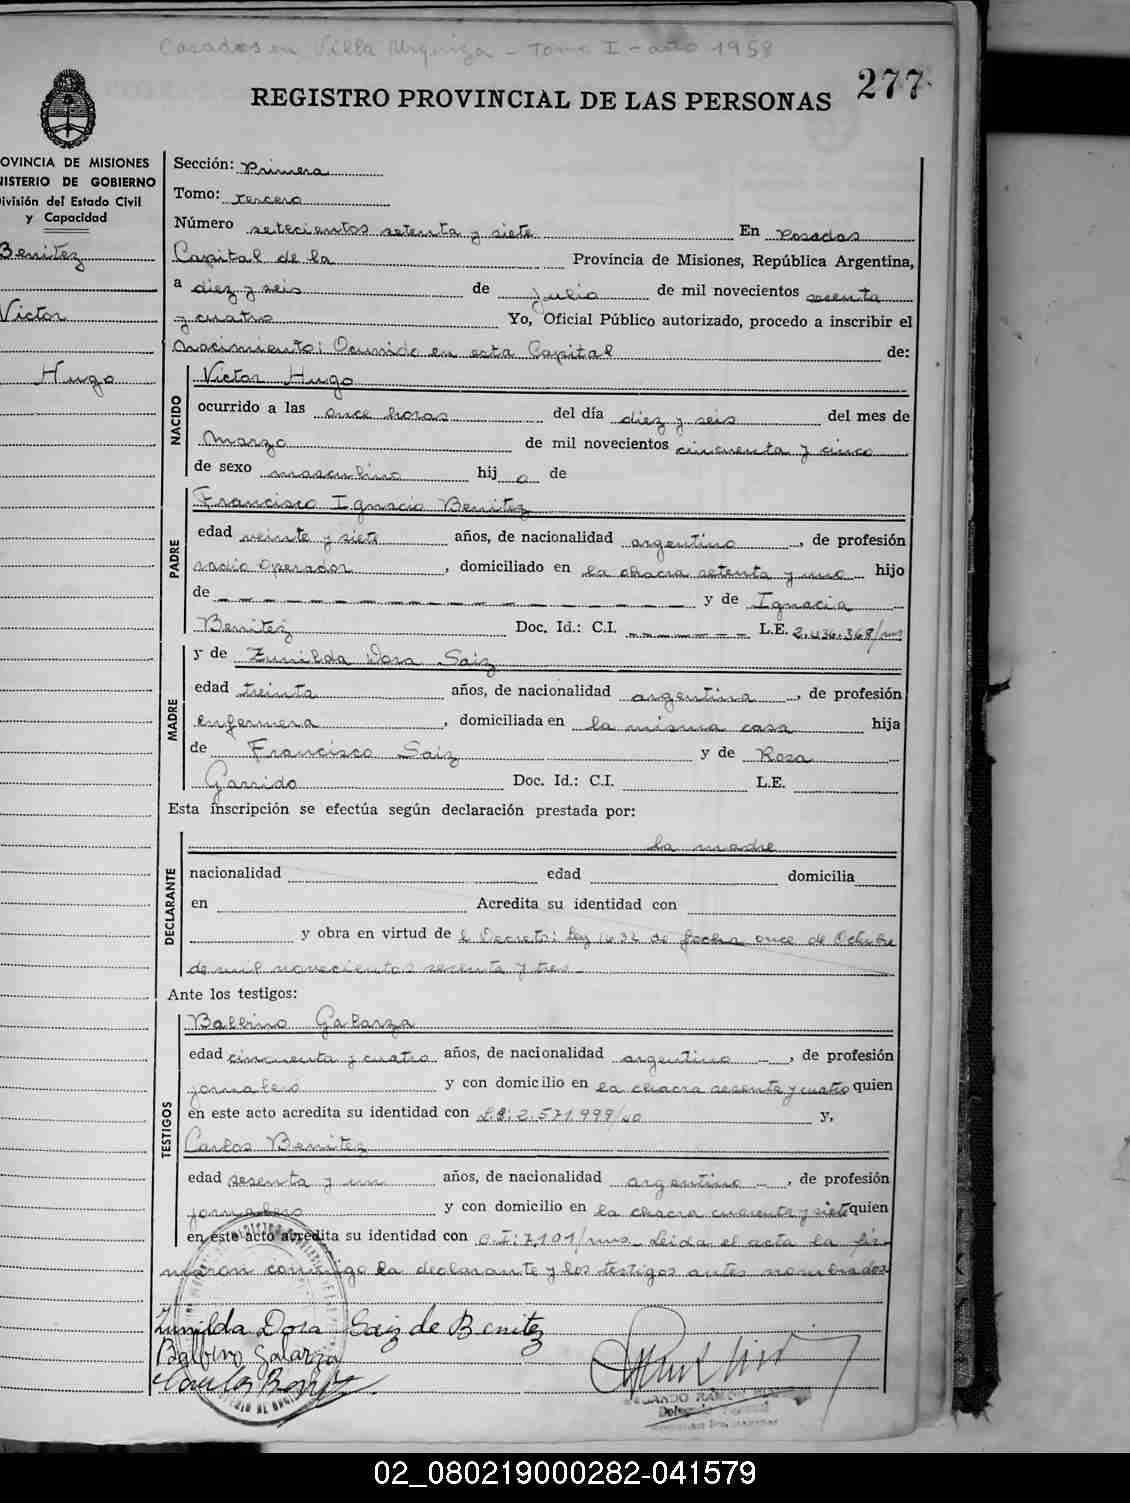 Casados en Villa Urquiza - Tomo I - año 1958
277
REGISTRO PROVINCIAL DE LAS PERSONAS
OVINCIA DE MISIONES
NISTERIO DE GOBIERNO
ivisión del Estado Civil
y Capacidad
Benitez
Victor
Hugo
Sección: Primera
Tomo: Tercero
Número setecientos setenta y siete En Posadas
Capital de la Provincia de Misiones, República Argentina,
a diez y seis de Julio de mil novecientos sesenta
y cuatro Yo, Oficial Público autorizado, procedo a inscribir el
nacimiento: Ocurrido en esta Capital de:
NACIDO
Victor Hugo
ocurrido a las once horas del día diez y seis del mes de
Marzo de mil novecientos cincuenta y cinco
de sexo masculino hij o de
PADRE
Francisco Ignacio Benitez
edad veinte y siete años, de nacionalidad argentino, de profesión
radio Operador, domiciliado en la chacra setenta y uno hijo
de y de Ignacia
Benitez Doc. Id.: C.I. L.E. 2.036.368/ms
MADRE
y de Zunilda Dora Saiz
edad treinta años, de nacionalidad argentina, de profesión
enfermera, domiciliada en la misma casa hija
de Francisco Saiz y de Rosa
Garrido Doc. Id.: C.I. L.E.
Esta inscripción se efectúa según declaración prestada por:
DECLARANTE
la madre
nacionalidad edad domicilia
en Acredita su identidad con
y obra en virtud de l Decreto: Ley 1032 de fecha once de Octubre
de mil novecientos sesenta y tres.
Ante los testigos:
TESTIGOS
Balbino Galarza
edad cincuenta y cuatro años, de nacionalidad argentino, de profesión
jornalero y con domicilio en la chacra sesenta y cuatro quien
en este acto acredita su identidad con L.E: 2.571.999/ y,
Carlos Benitez
edad sesenta y un años, de nacionalidad argentino, de profesión
jornalero y con domicilio en la chacra cuarenta y siete quien
en este acto acredita su identidad con C.I: 7.101/ms. Leida el acta la fir-
maron conmigo la declarante y los testigos antes nombrados
Zunilda Dora Saiz de Benitez
Balbino Galarza
Carlos Benitez
02_080219000282-041579